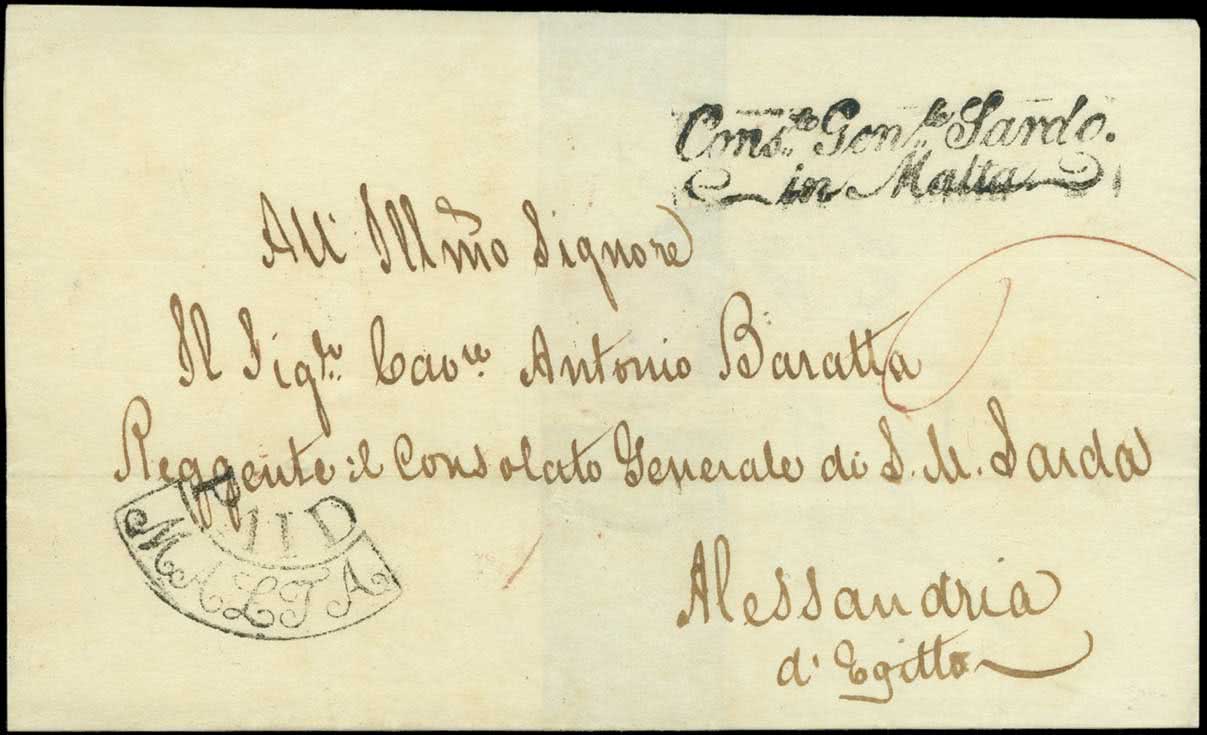 Cons.to Gen.le Sardo.
in Malta
All' Illmo Signore
Il Sig.re Cav.re Antonio Baratta
Reggente il Consolato Generale di S. M. Sarda
Alessandria
d'Egitto
PAID
MALTA